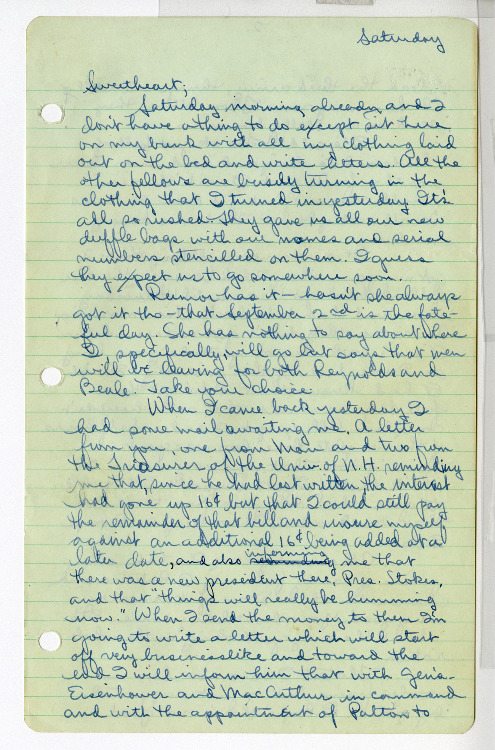 Saturday
Sweetheart;
Saturday morning already and I
don't have a thing to do except sit here
on my bunk with all my clothing laid
out on the bed and write letters. All the
other fellows are busily turning in the
clothing that I turned in yesterday. It's
all so rushed. They gave us all our new
duffle bags with our names and serial
numbers stencilled on them. I guess
they expect us to go somewhere soon.
Rumor has it — hasn't she always
got it tho - that September 2nd is the fate-
ful day. She has nothing to say about where
I, specifically, will go but says that men
will be leaving for both Reynolds and
Beale. Take your choice.
When I came back yesterday I
had some mail awaiting me. A letter
from you, one from Mom and two from
the Treasurer of the Univ. of N.H. reminding
me that, since he had last written, the interest
had gone up 16¢ but that I could still pay
the remainder of that bill and insure myself
against an additional 16¢ being added at a
later date, and also informing me that
there was a new president there, Pres. Stokes,
and that "things will really be humming
now." When I send the money to them I'm
going to write a letter which will start
off very businesslike and toward the
end I will inform him that with Gen's.
Eisenhower and MacArthur in command
and with the appointment of Patton to